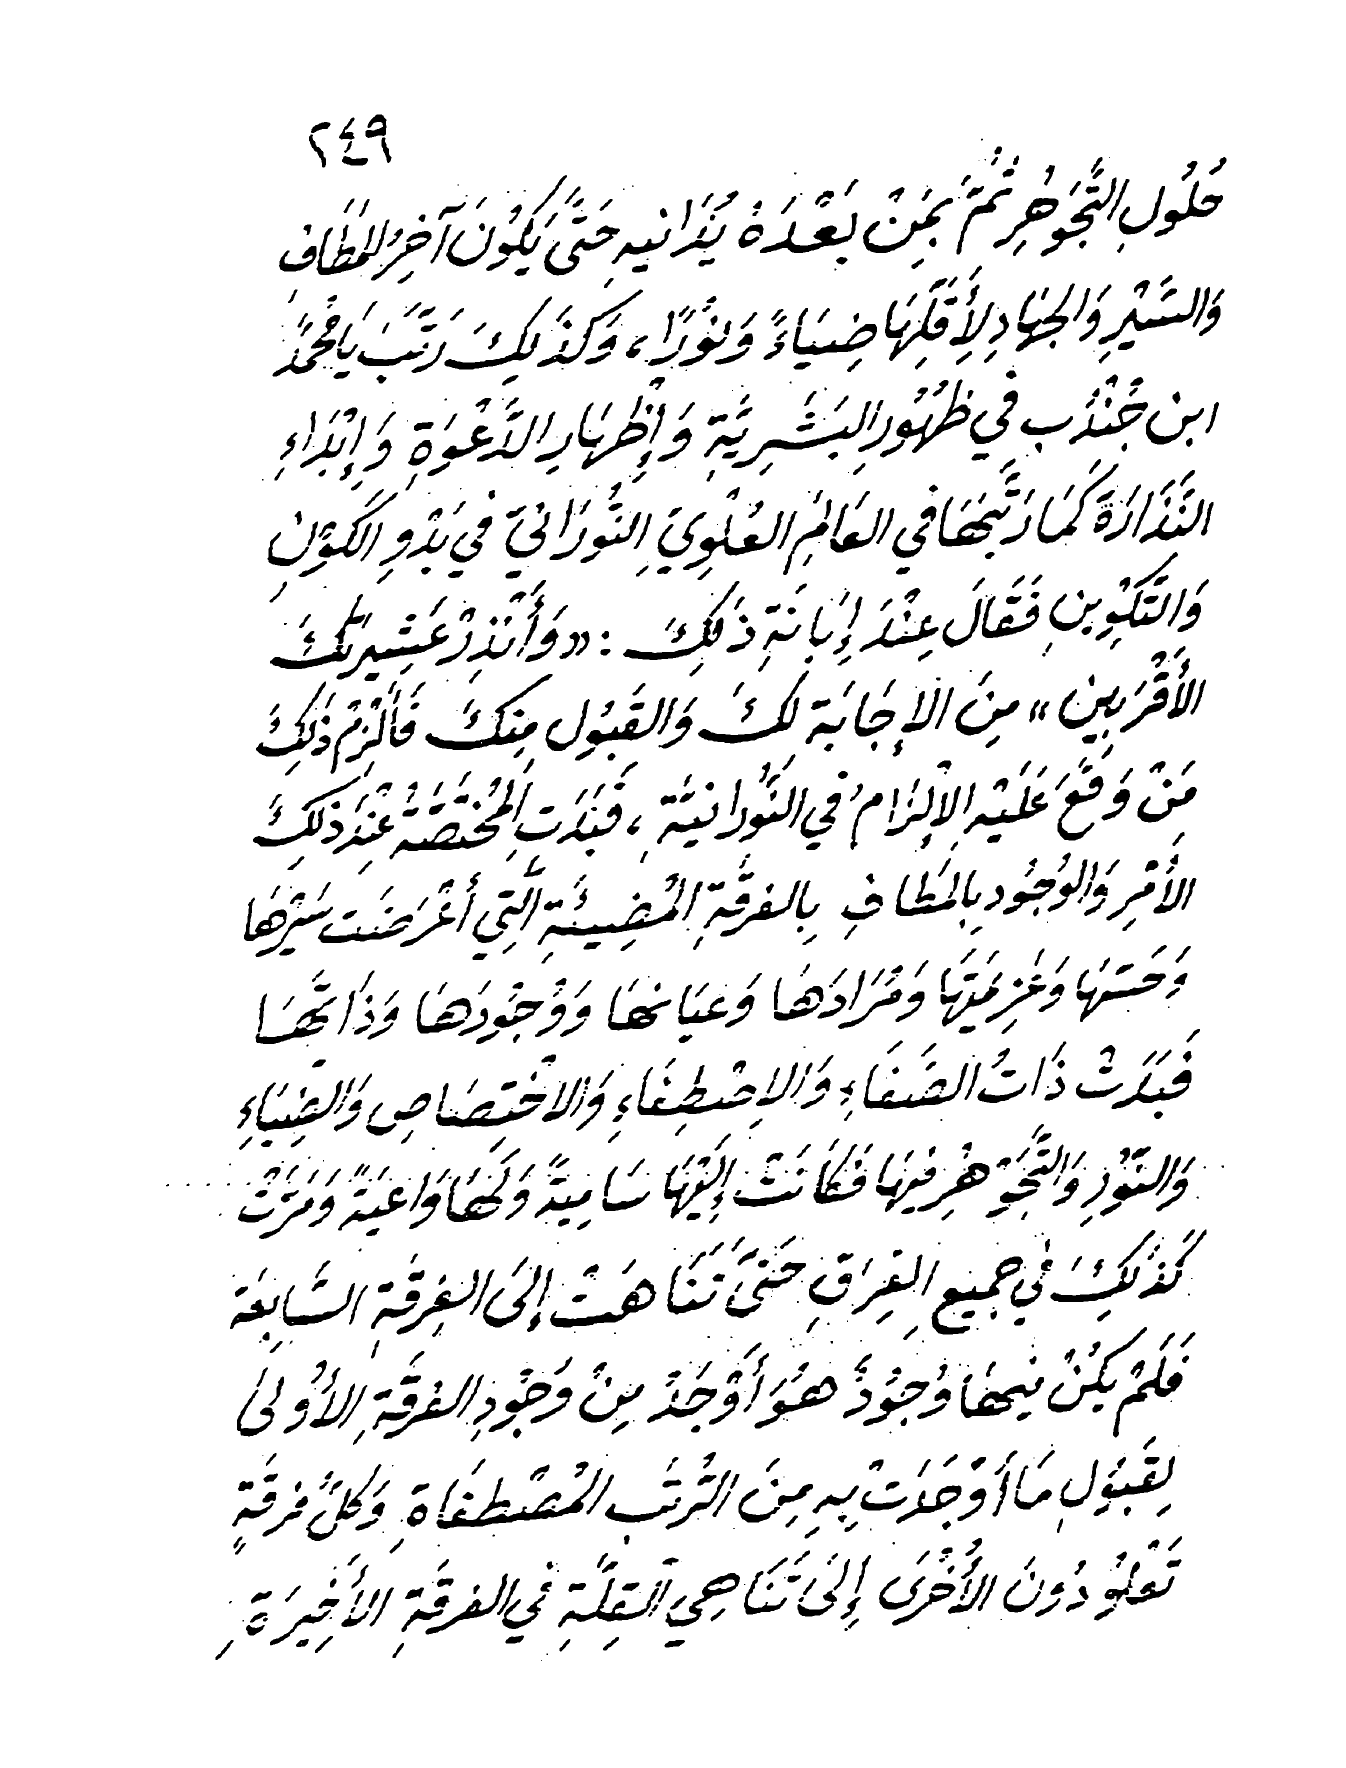 ٢٤٩
حُلُولِ التَّجَوْهُرِ ثُمَّ بِمَنْ بَعْدَهُ يُدَانِيهِ حَتَّى يَكُونَ آخِرُ المَطَافِ
وَالسَّيْرِ وَالجِهَادِ لِأَقَلِّهَا ضِيَاءً وَنُورًا، وَكَذَلِكَ رَتَّبَ يَا مُحَمَّدُ
ابن جُنْدُبِ فِي ظُهُورِ البَشَرِيَّةِ وَإِظْهَارِ الدَّعْوَةِ وَإِبْدَاءِ
النَّذَارَةِ كَمَا رَتَّبَهَا فِي العَالَمِ العُلْوِيِّ النُّورَانِيِّ فِي بَدْوِ الكَوْنِ
وَالتَّكْوِينِ فَقَالَ عِنْدَ إِبَانَةِ ذَلِكَ : «وَأَنْذِرْ عَشِيرَتَكَ
الأَقْرَبِينَ» مِنَ الإِجَابَةِ لَكَ وَالقَبُولِ مِنكَ فَأَلْزِمْ ذَلِكَ
مَنْ وَقَعَ عَلَيْهِ الإِلْزَامُ فِي النُّورَانِيَّةِ، فَبَدَتِ المُخْتَصَّةُ عِنْدَ ذَلِكَ
الأَمْرِ وَالوُجُودِ بِالمَطَافِ بِالفِرقَةِ المُضِيئَةِ الَّتِي أَعْرَضَت سَيْرَهَا
وَحَسَّهَا وَعَزِيمَتَهَا وَمُرَادَهَا وَعَيَانَهَا وَوُجُودَهَا وَذَاتَهَا
فَبَدَتْ ذَاتُ الصَّفَاءِ وَالاِصْطِفَاءِ وَالاخْتِصَاصِ وَالضِّيَاءِ
وَالنُّورِ وَالتَّجَوْهُرِ فِيهَا فَكَانَتْ إِلَيْهَا سَامِيَةً وَلَهَا وَاعِيَةً وَمَرَّتْ
كَذَلِكَ فِي جَمِيعِ الفِرَقِ حَتَّى تَنَاهَتْ إِلَى الفِرقَةِ السَّابِعَة
فَلَمْ يَكُنْ فِيهَا وُجُودٌ هُوَ أَوْجَدُ مِنْ وُجُودِ الفِرقَةِ الأُولَى
لِقَبُولِ مَا أَوْجَدَتْ بِهِ مِنَ الرُّتَبِ المُصْطَفَاةِ وَكُلُّ فِرقَةٍ
تَعْلُو دُونَ الأُخْرَى إِلَى تَنَاهِي القِلَّةِ فِي الفِرقَةِ الأَخِيرَةِ